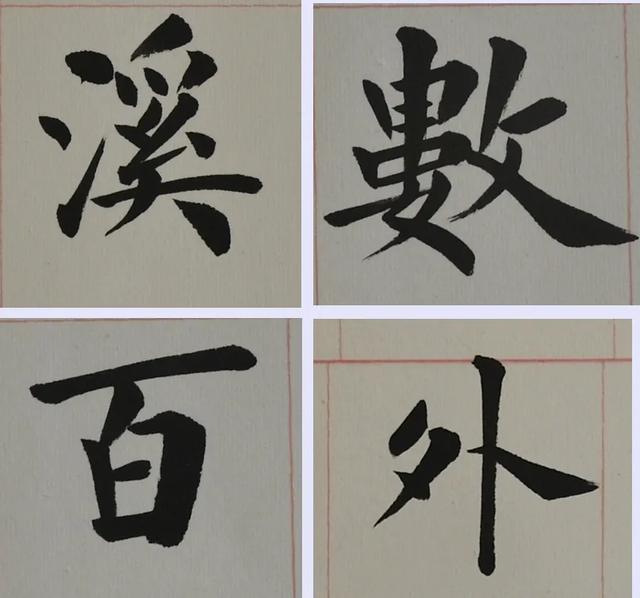 溪數
百外